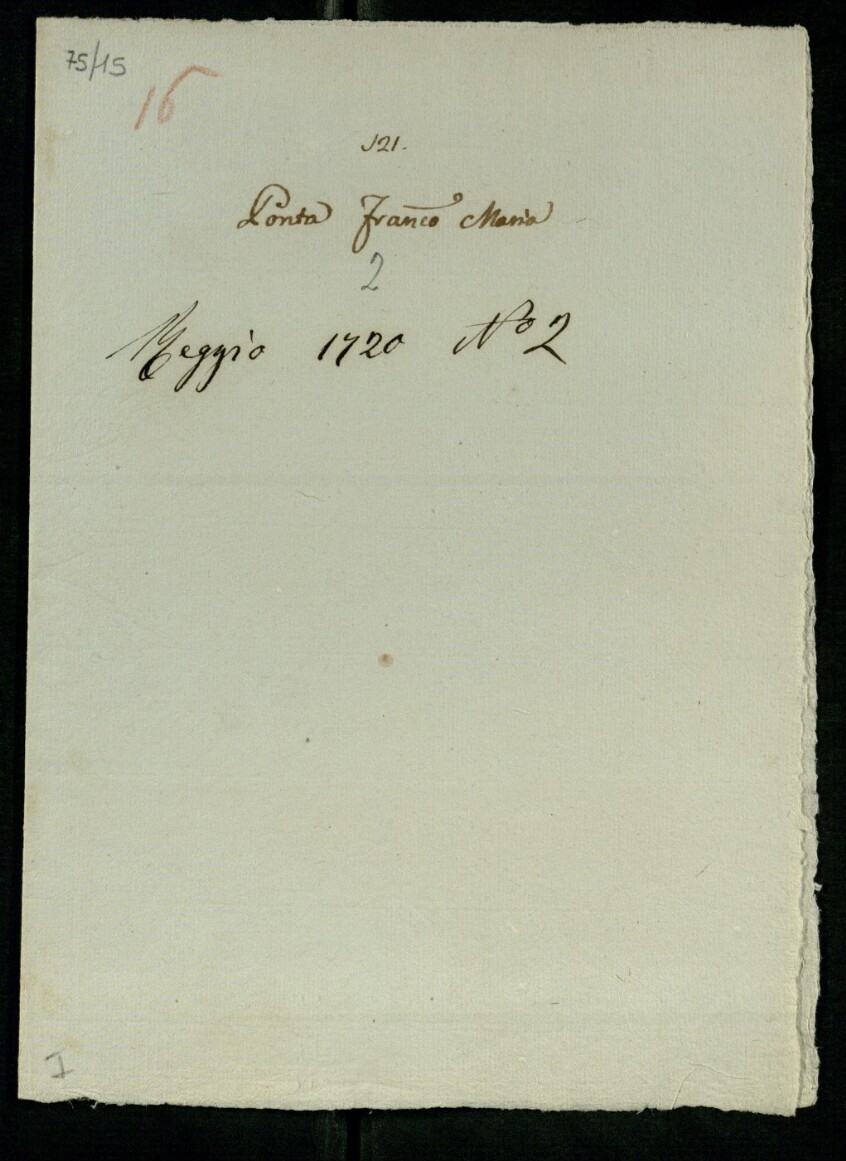 75/15
16
121.
Ponta Franco Maria
2
Reggio 1720 No 2
I